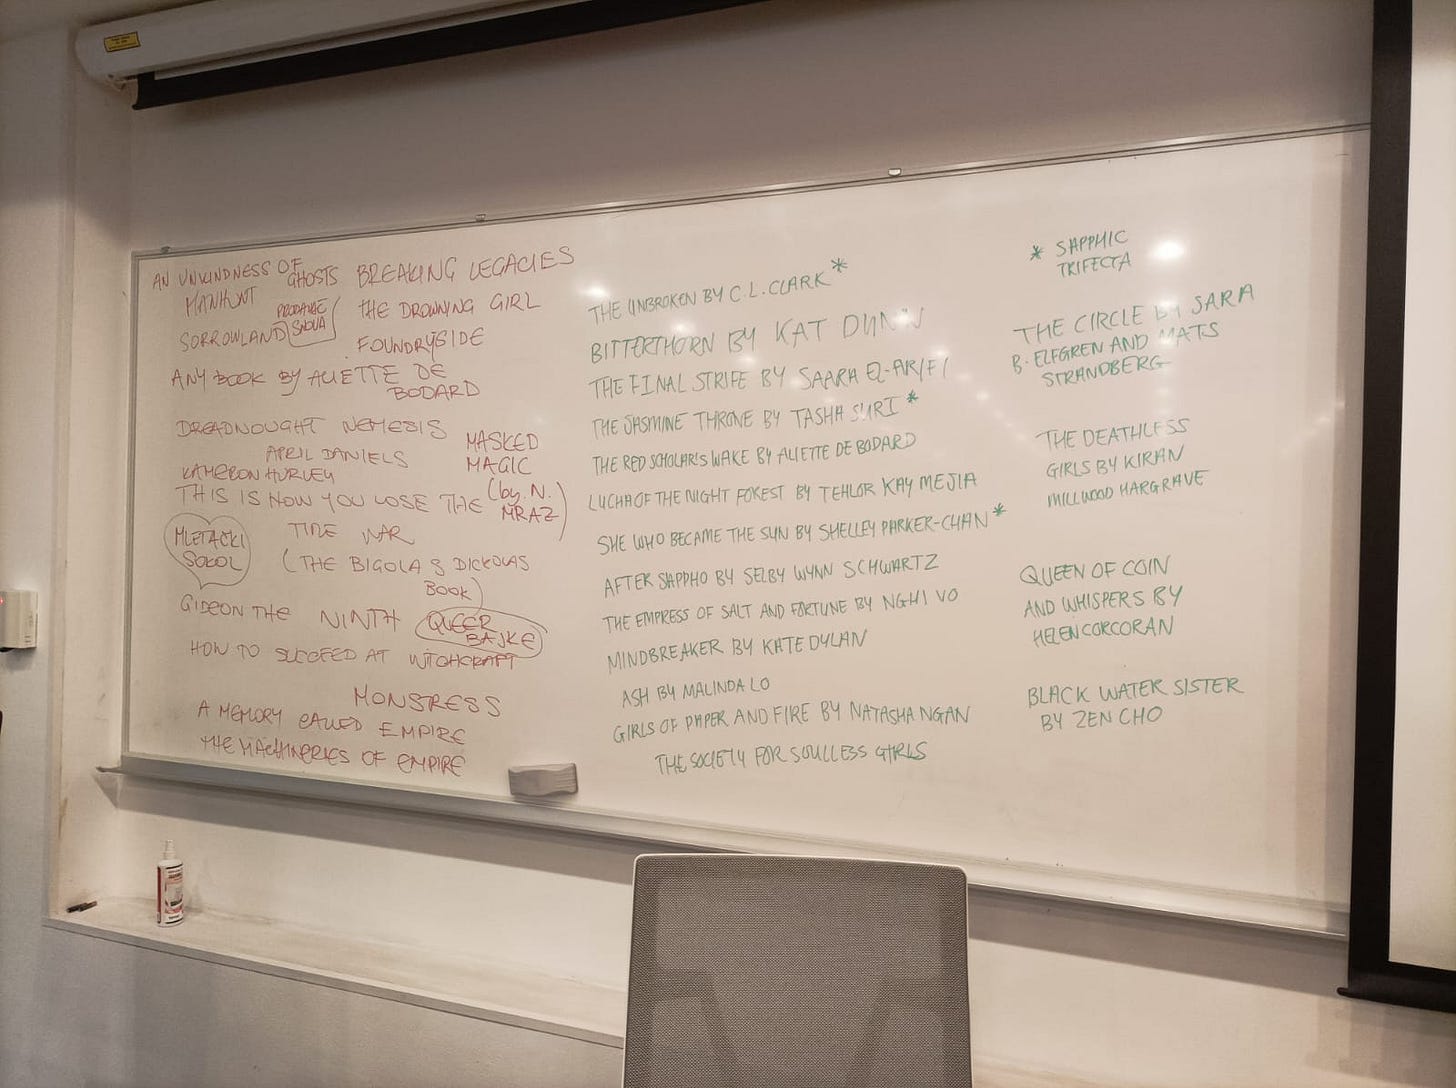 AN UNKINDNESS OF GHOSTS
BREAKING LEGACIES
MANHUNT
THE DROWNING GIRL
SORROWLAND
SNOVA
FOUNDRYSIDE
ANY BOOK BY ALIETTE DE
BODARD
DREADNOUGHT NEMESIS
APRIL DANIELS
MASKED
MAGIC
(by. N.
MRAZ)
KAMERON HURLEY
THIS IS HOW YOU LOSE THE
TIME WAR
(THE BIGOLAS DICKOLAS
BOOK)
MLETAČKI
SOKOL
GIDEON THE NINTH
QUEER
BAJKE
HOW TO SUCCEED AT WITCHCRAFT
MONSTRESS
A MEMORY CALLED EMPIRE
THE MACHINERIES OF EMPIRE
THE UNBROKEN BY C.L. CLARK *
BITTERTHORN BY KAT DUNN
THE FINAL STRIFE BY SAARA EL-ARIFI
THE JASMINE THRONE BY TASHA SURI *
THE RED SCHOLAR'S WAKE BY ALIETTE DE BODARD
LUCHA OF THE NIGHT FOREST BY TEHLOR KAY MEJIA
SHE WHO BECAME THE SUN BY SHELLEY PARKER-CHAN *
AFTER SAPPHO BY SELBY WYNN SCHWARTZ
THE EMPRESS OF SALT AND FORTUNE BY NGHI VO
MINDBREAKER BY KATE DYLAN
ASH BY MALINDA LO
GIRLS OF PAPER AND FIRE BY NATASHA NGAN
THE SOCIETY FOR SOULLESS GIRLS
* SAPPHIC
TRIFECTA
THE CIRCLE BY SARA
B. ELFGREN AND MATS
STRANDBERG
THE DEATHLESS
GIRLS BY KIRAN
MILLWOOD HARGRAVE
QUEEN OF COIN
AND WHISPERS BY
HELEN CORCORAN
BLACK WATER SISTER
BY ZEN CHO